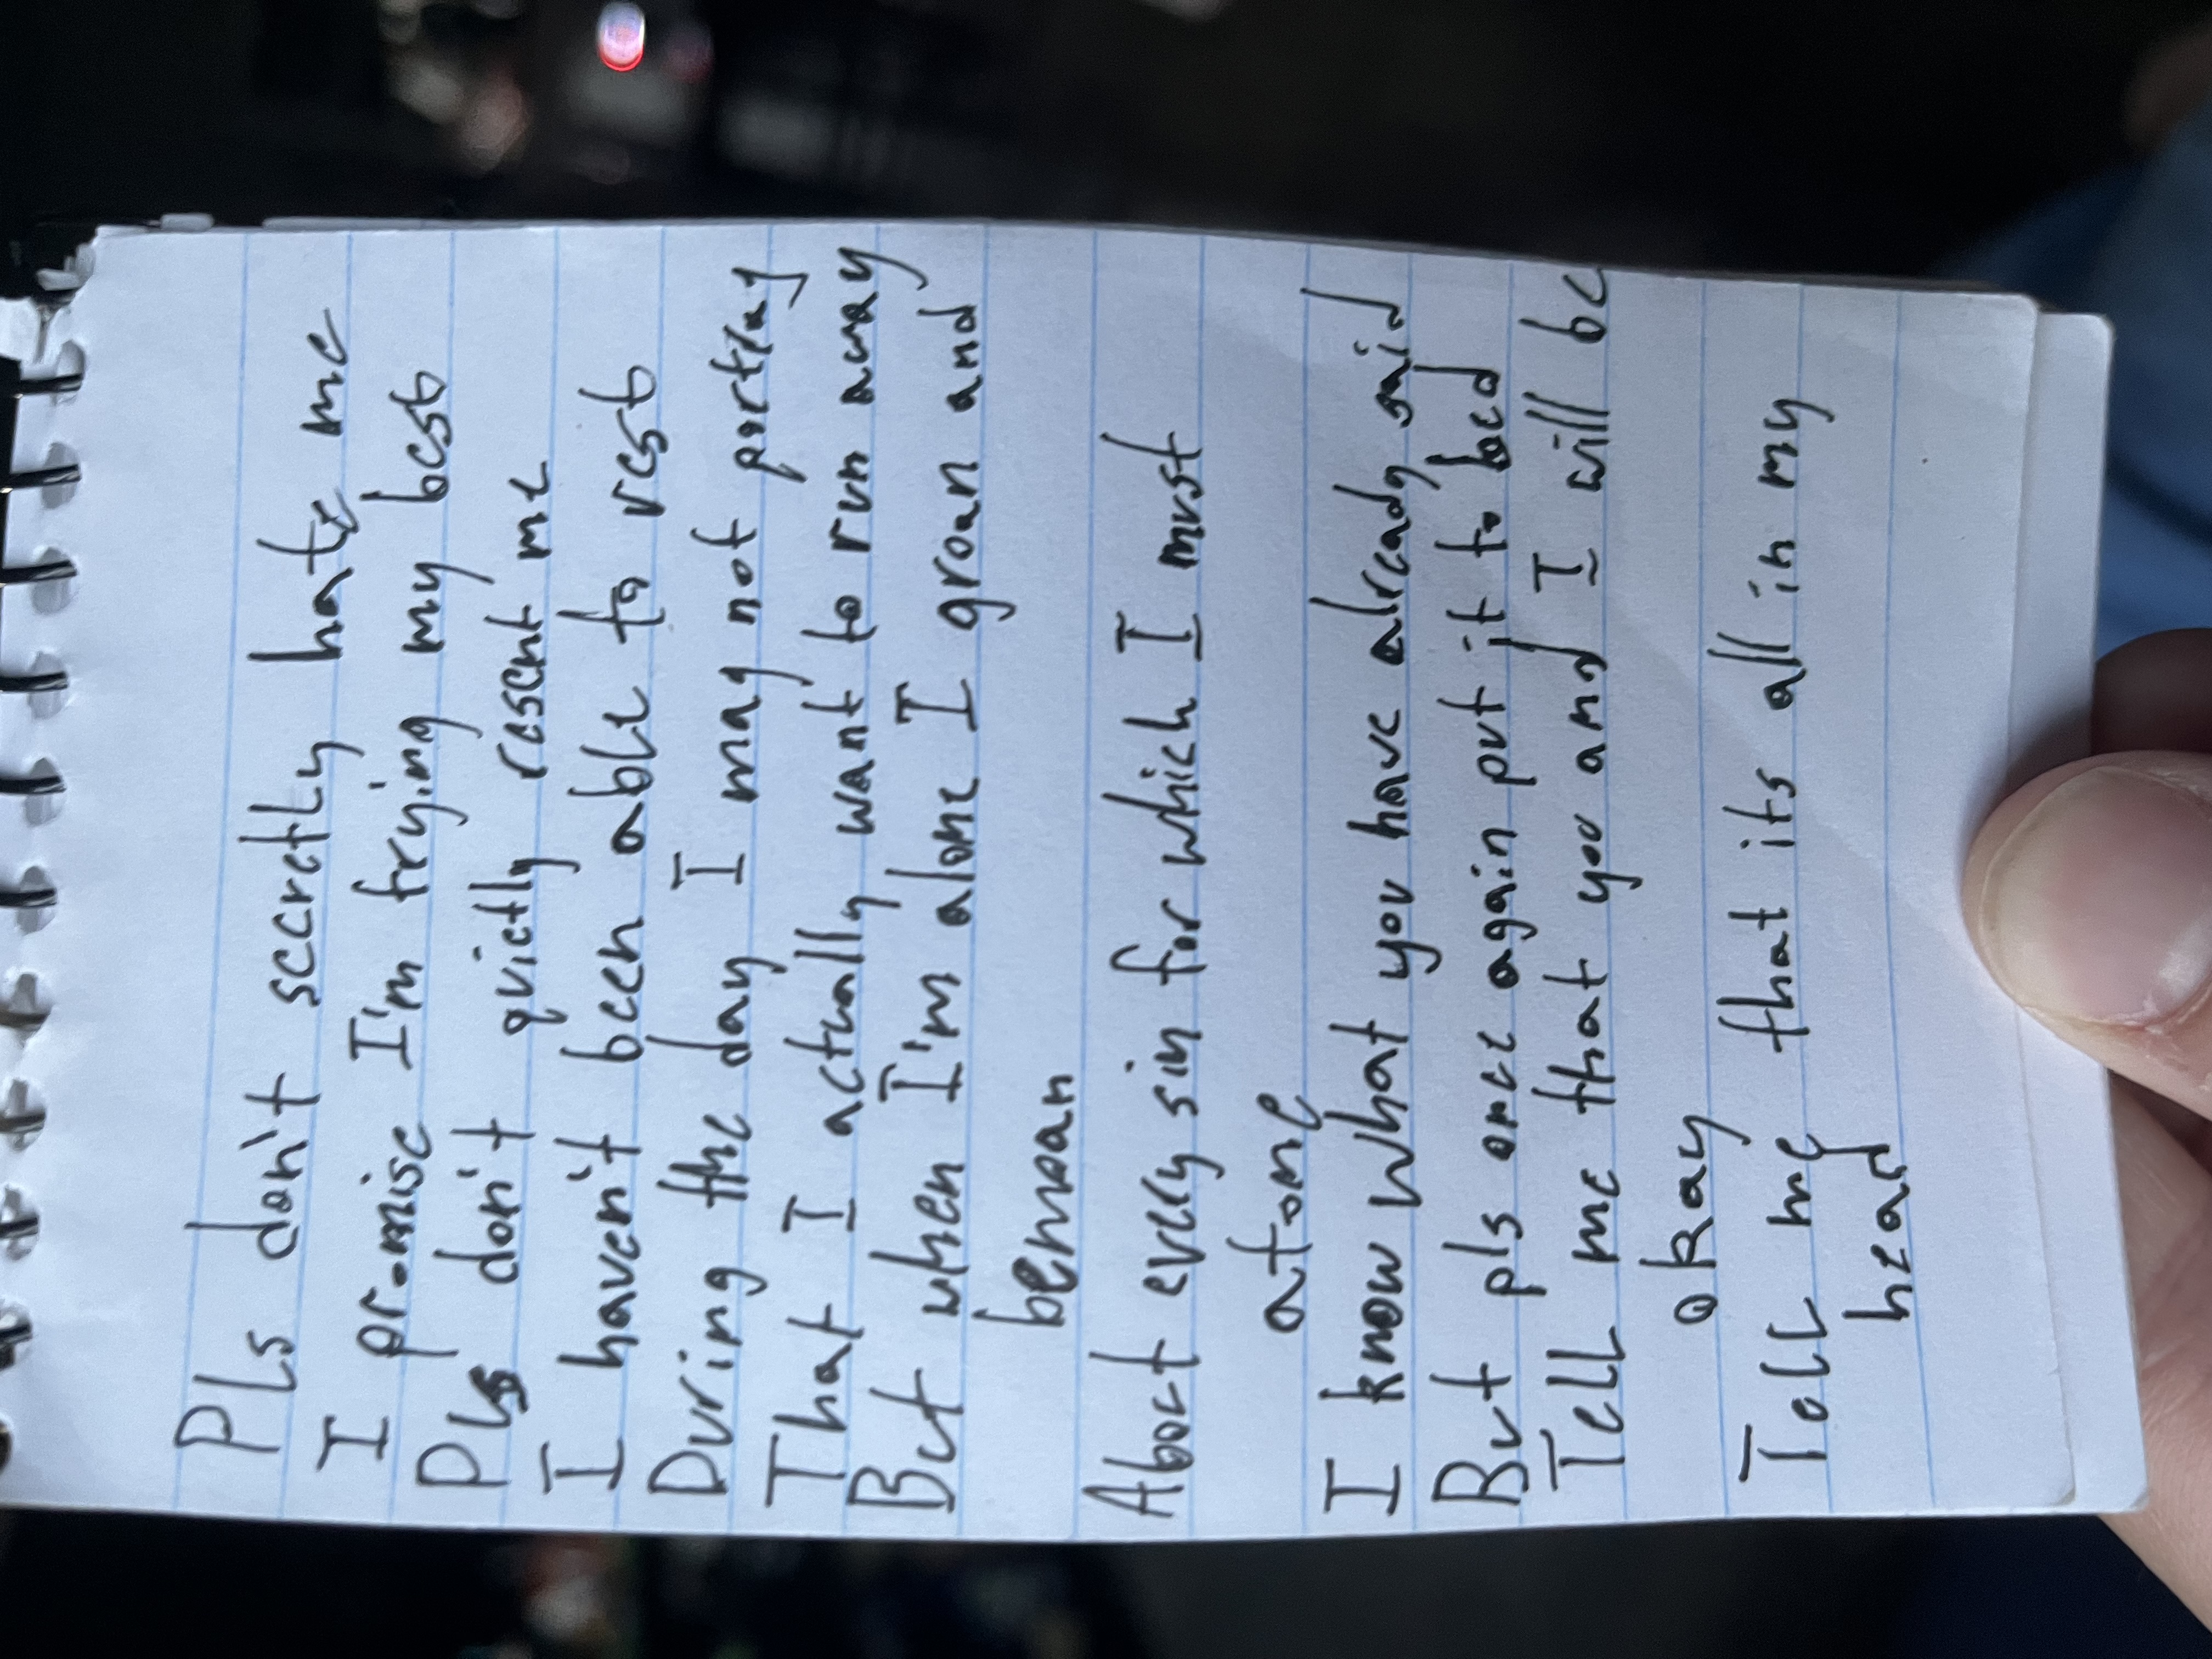 Pls don't secretly hate me
I promise I'm trying my best
Pls don't quietly resent me
I haven't been able to rest
During the day I may not portray
That I actually want to run away
But when I'm alone I groan and
bemoan
About every sin for which I must
atone
I know what you have already said
But pls once again put it to bed
Tell me that you and I will be
okay
Tell me that its all in my
head